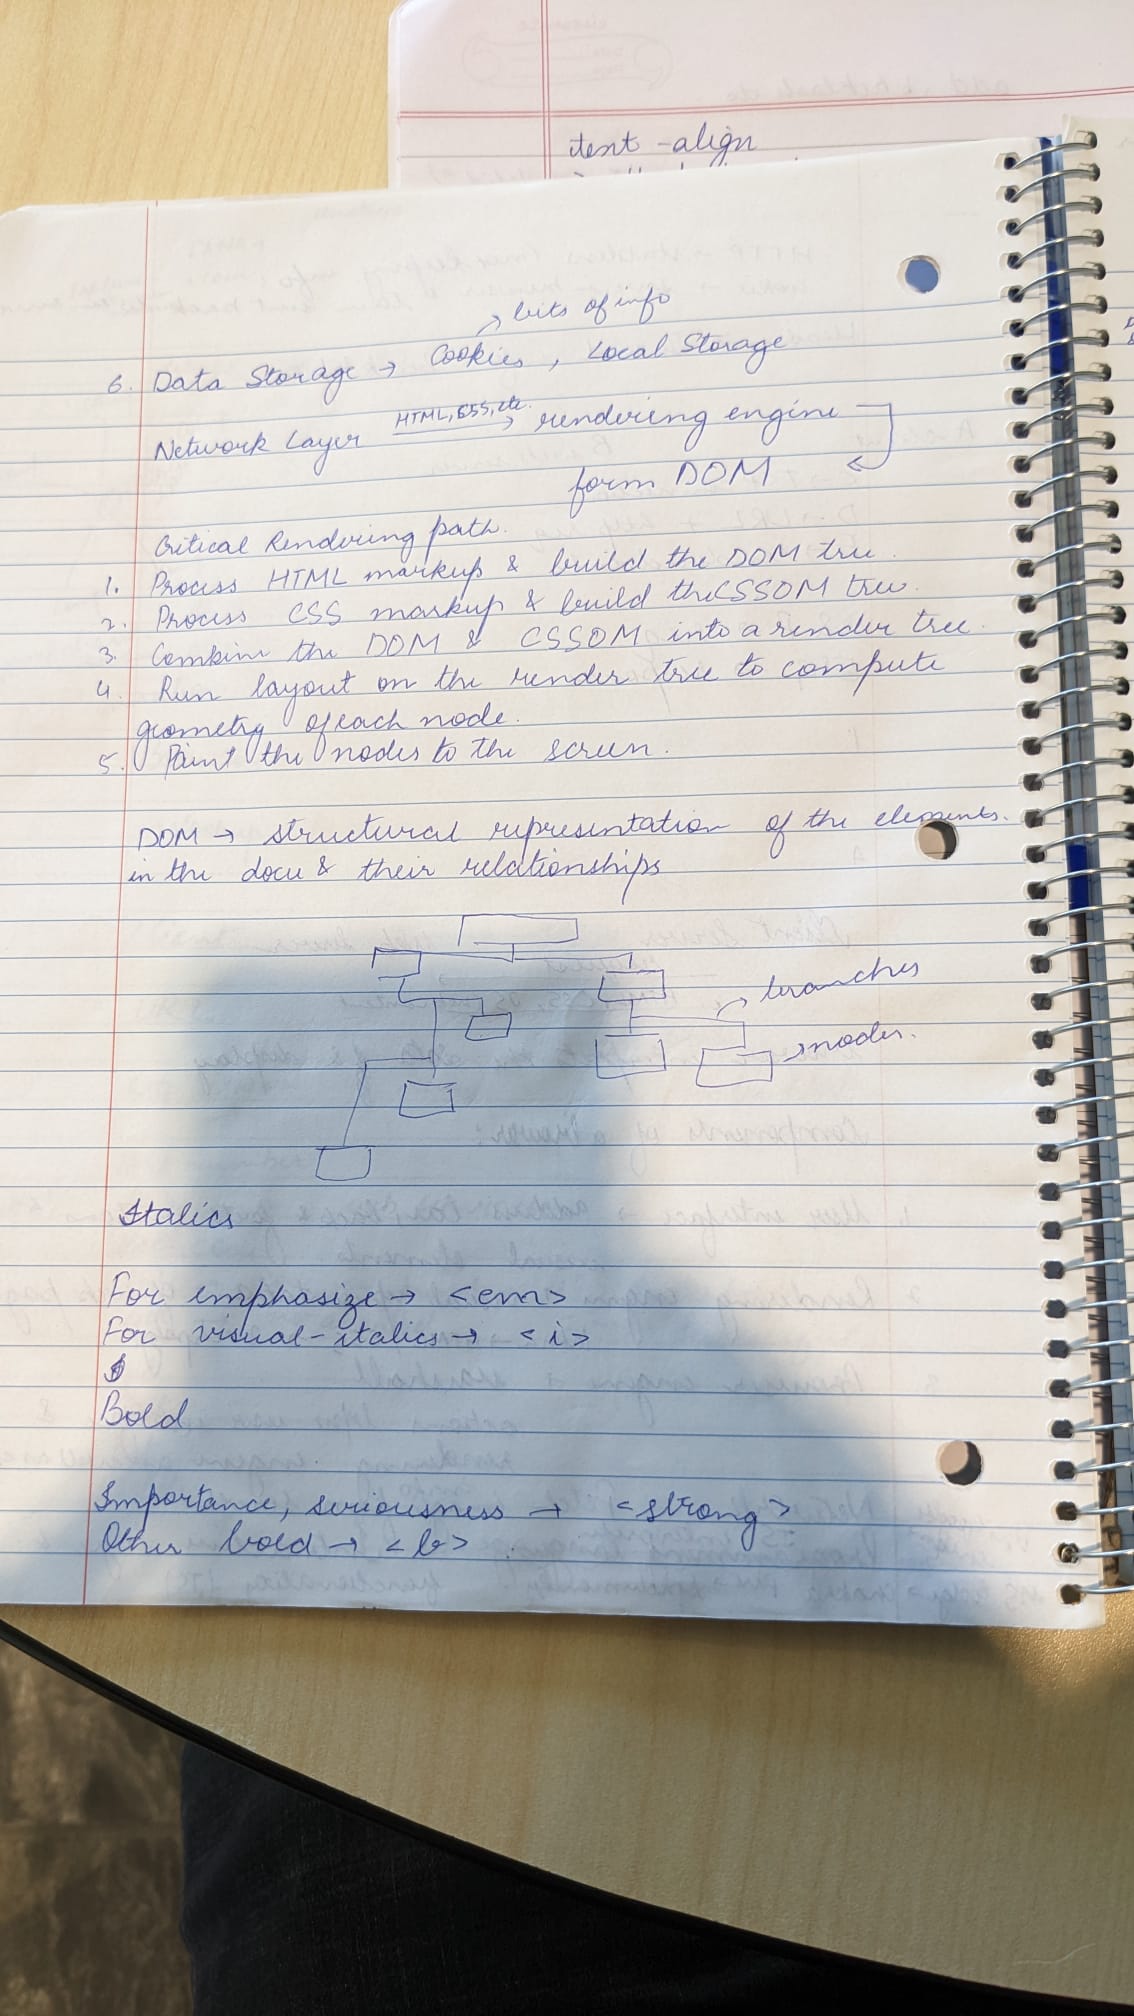 text-align
bits of info
6. Data Storage → Cookies, Local Storage
Network Layer HTML, CSS, etc. → rendering engine
form DOM
Critical Rendering path.
1. Process HTML markup & build the DOM tree.
2. Process CSS markup & build the CSSOM tree.
3. Combine the DOM & CSSOM into a render tree.
4. Run layout on the render tree to compute
geometry of each node.
5. Paint the nodes to the screen.
DOM → structural representation of the elements.
in the docu & their relationships
branches
nodes.
Italics
For emphasize → <em>
For visual-italics → <i>
Bold
Importance, seriousness → <strong>
Other bold → <b>